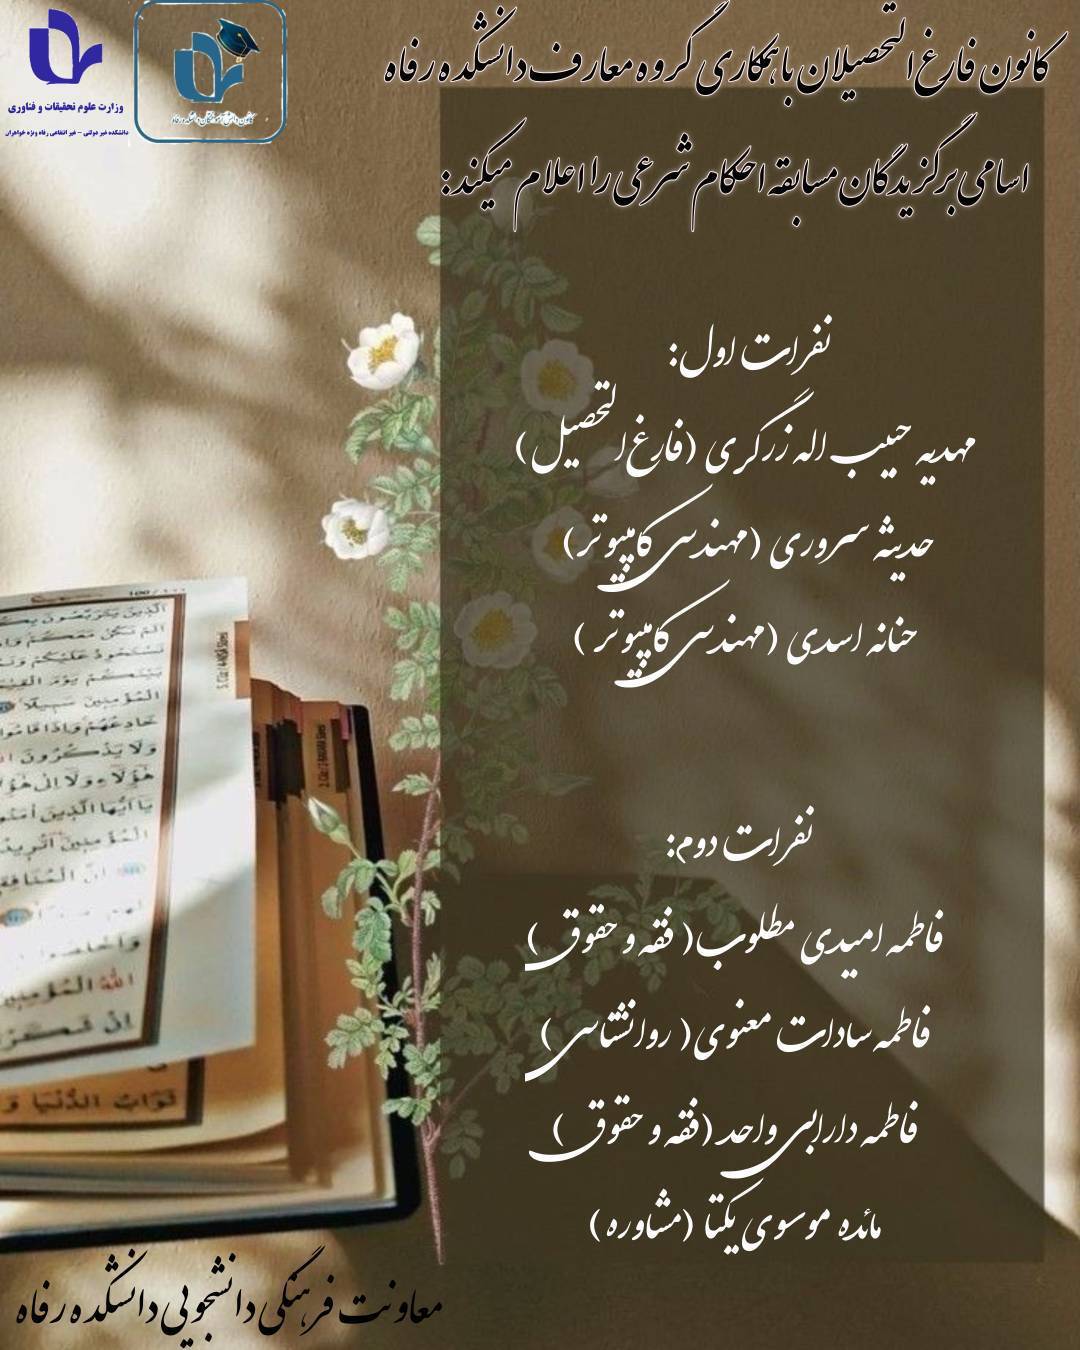 کانون فارغ التحصیلان با همکاری گروه معارف دانشکده رفاه
اسامی برگزیدگان مسابقه احکام شرعی را اعلام میکند:
وزارت علوم تحقیقات و فناوری
دانشکده غیر دولتی - غیر انتفاعی رفاه ویژه خواهران
کانون دانش آموختگان دانشکده رفاه
نفرات اول:
مهدیه حبیب اله زرگری (فارغ التحصیل)
حدیثه سروری (مهندسی کامپیوتر)
حنانه اسدی (مهندسی کامپیوتر )
نفرات دوم:
فاطمه امیدی مطلوب( فقه و حقوق )
فاطمه سادات معنوی( روانشناسی )
فاطمه دارابی واحد (فقه و حقوق )
مائده موسوی یکتا (مشاوره )
معاونت فرهنگی دانشجویی دانشکده رفاه
وَلَا يَذْكُرُونَ
الْمُؤْمِنِينَ سَبِيلًا
ثَوَابَ الدُّنْيَا وَ